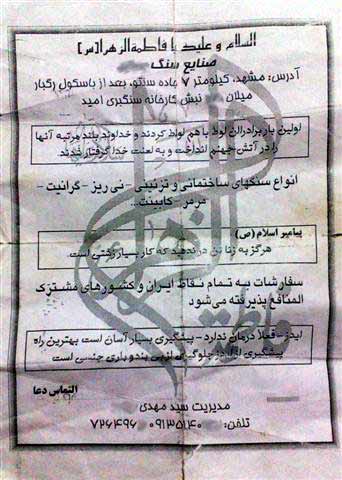 السلام و علیک یا فاطمة الزهرا (س)
صنایع سنگ
آدرس: مشهد، کیلومتر ۷ جاده سنتو، بعد از باسکول رگبار
میلان نبش کارخانه سنگبری امید
اولین بار برادران لوط با هم لواط کردند و خداوند بلند مرتبه آنها
را در آتش جهنم انداخت و به لعنت خدا گرفتار شدند
انواع سنگهای ساختمانی و تزئینی - نی ریز - گرانیت -
مرمر - کابینت...
پیامبر اسلام (ص)
هرگز به زنا تن در ندهید که کار بسیار زشتی است.
سفارشات به تمام نقاط ایران و کشورهای مشترک
المنافع پذیرفته می شود
ایدز فعلا درمان ندارد - پیشگیری بسیار آسان است بهترین راه
پیشگیری از آن جلوگیری از بی بند و باری جنسی است
التماس دعا
مدیریت سید مهدی
تلفن: ۰۹۱۳۵۱۴۰ ۷۲۶۴۹۶